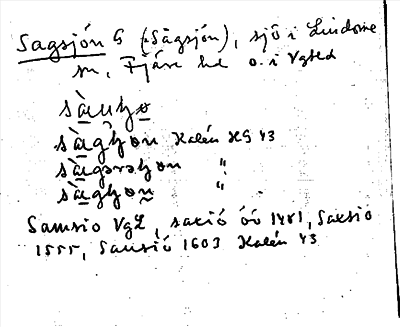 Sagsjón G (Sågsjón), sjö i Lindome
sn, Fjäre hd o. i Vgtld
sàgȝøn Kalén HG 43
sàgərəȝøn "
sàgȝøn "
Samsio VgL, saxió öö 1481, Saxsio
1555, Sausió 1603 Kalén 43